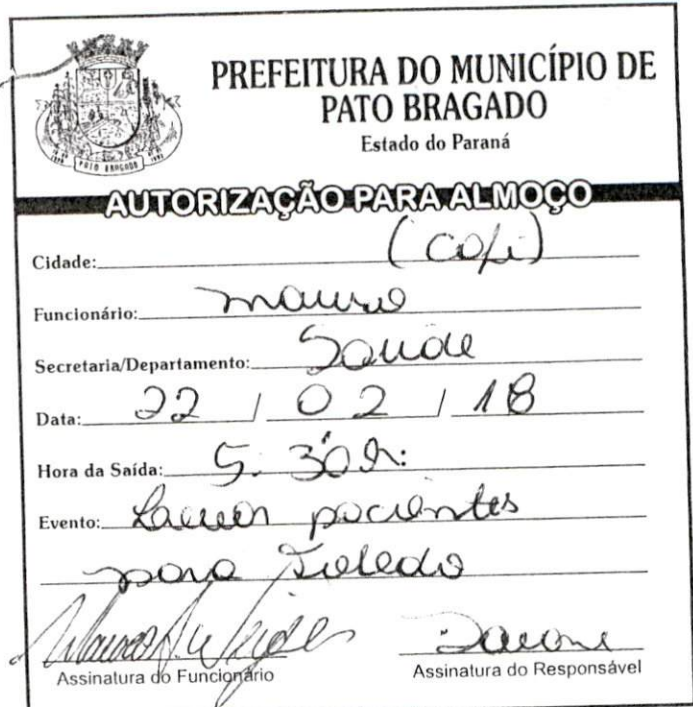 PREFEITURA DO MUNICÍPIO DE
PATO BRAGADO
Estado do Paraná
PATO BRAGADO
AUTORIZAÇÃO PARA ALMOÇO
Cidade: (Cofi)
Funcionário: Mauro
Secretaria/Departamento: Saúde
Data: 22 / 02 / 18
Hora da Saída: 5:30h:
Evento: Levar pacientes
para Toledo
Assinatura do Funcionário
Assinatura do Responsável